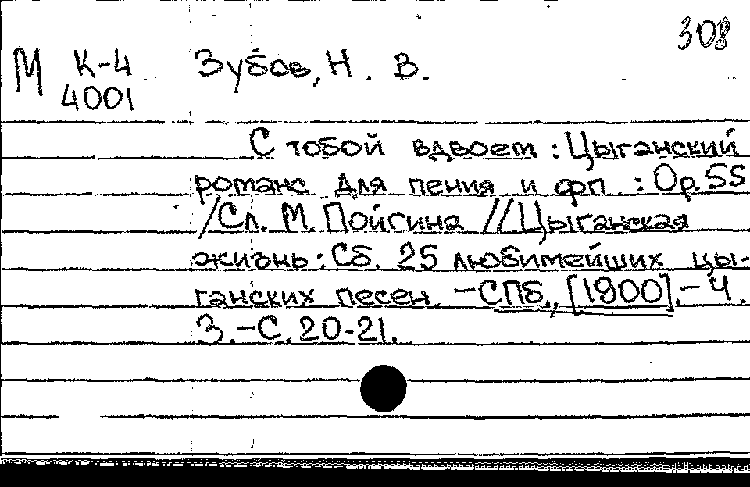 308
М К-4 Зубов, Н. В.
4001
С тобой вдвоем : Цыганский
романс для пения и фп. : Op. 55
/Сл. М. Пойгина // Цыганская
жизнь : Сб. 25 любимейших цы-
ганских песен. - СПб., [1900]. - Ч.
3. - С. 20-21.